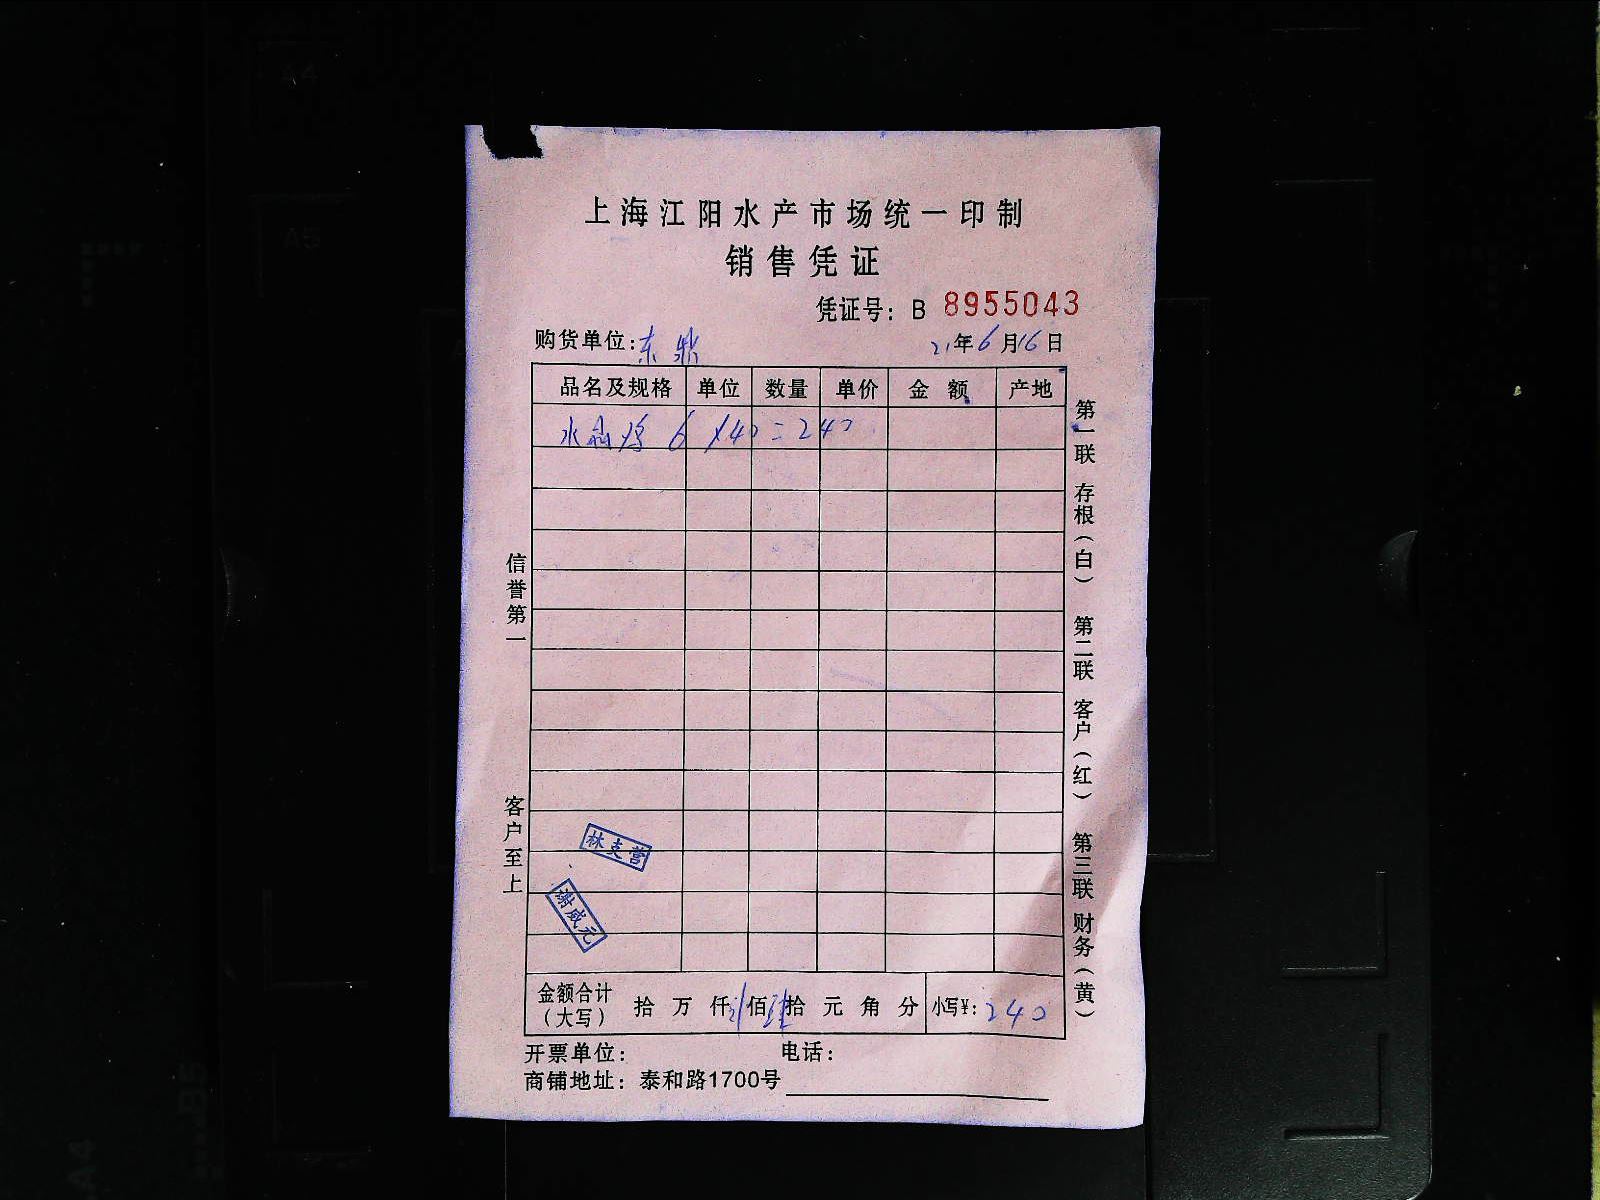 上海江阳水产市场统一印制
销售凭证
凭证号：B 8955043
购货单位：东鼎 21年6月16日
品名及规格 单位 数量 单价 金额 产地
水晶鸡 6 ×40=240
信誉第一
客户至上
第一联 存根（白） 第二联 客户（红） 第三联 财务（黄）
林支营
谢威元
金额合计（大写） 拾 万 仟 佰 拾 元 角 分 小写¥：240
开票单位： 电话：
商铺地址：泰和路1700号
A4
A5
B5
A4